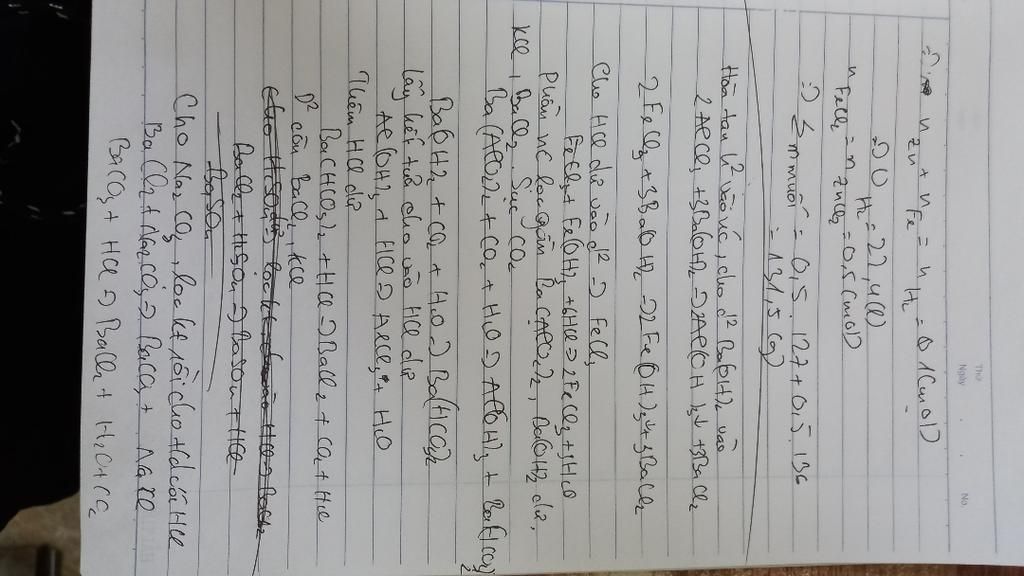 Thứ
Ngày . . No.
=) n Zn + n Fe = n H2 = 0,1 (mol)
=) V H2 = 22,4 (l)
n FeCl2 = n ZnCl2 = 0,5 (mol)
=) Σ m muối = 0,5 . 127 + 0,5 . 136
= 131,5 (g)
Hòa tan h² vào nc, cho d² Ba(OH)2 vào
2AlCl3 + 3Ba(OH)2 => 2Al(OH)3↓ + 3BaCl2
2FeCl3 + 3Ba(OH)2 => 2Fe(OH)3↓ + 3BaCl2
Cho HCl dư vào d² => FeCl3
FeCl3 + Fe(OH)3 + 6HCl => 2FeCl3 + 3H2O
Phần nc lọc gồm Ba(AlO2)2, Ba(OH)2 dư,
KCl, BaCl2 Sục CO2
Ba(AlO2)2 + CO2 + H2O => Al(OH)3 + Ba(HCO3)2
Ba(OH)2 + CO2 + H2O => Ba(HCO3)2
Lấy kết tủa cho vào HCl dư
Al(OH)3 + HCl => AlCl3 + H2O
Thêm HCl dư
Ba(HCO3)2 + HCl => BaCl2 + CO2 + H2O
D² còn BaCl2, KCl
BaCl2 + H2SO4 => BaSO4 + HCl
BaSO4
Cho Na2CO3, lọc kt rồi cho + HCl
BaCl2 + Na2CO3 => BaCO3 + NaCl
BaCO3 + HCl => BaCl2 + H2O + CO2